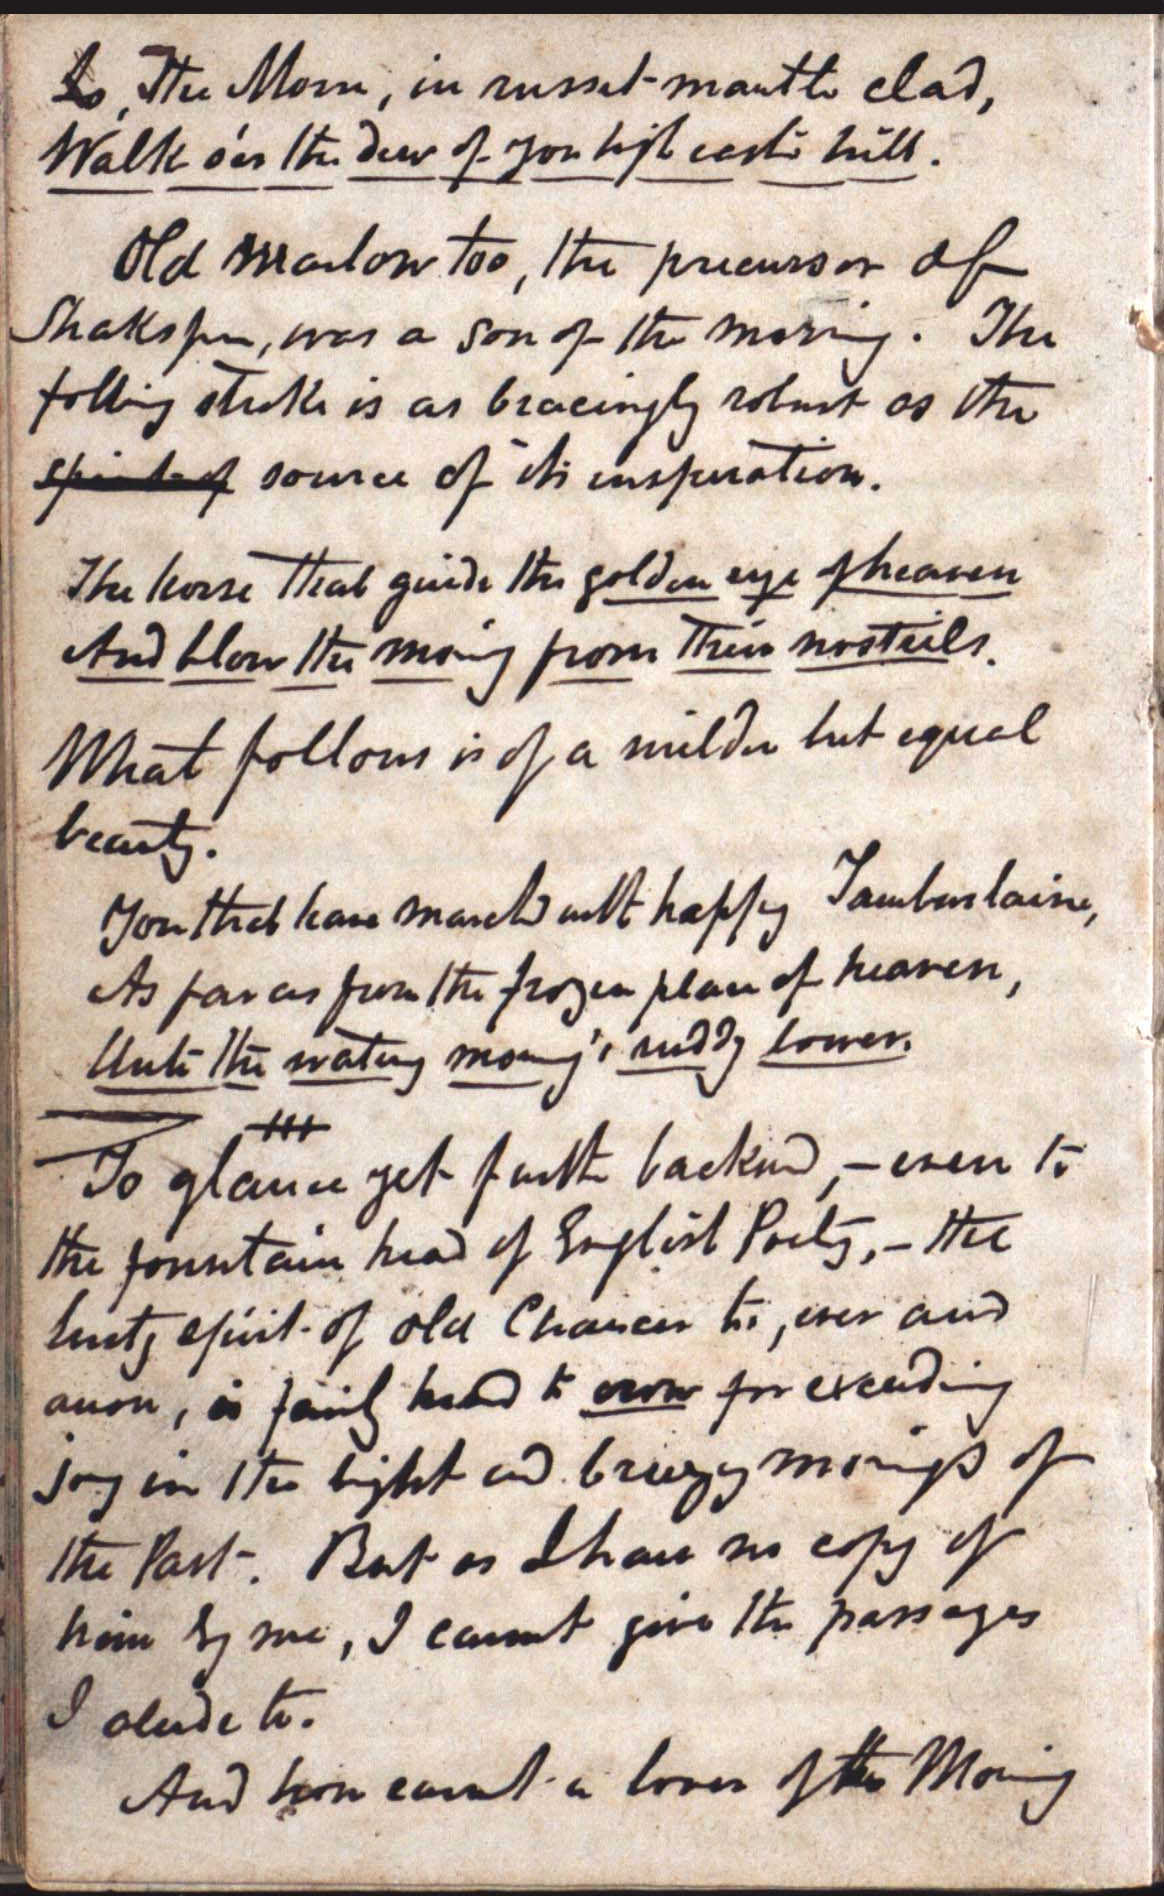 Lo, The Morn, in russet mantle clad,
Walk o'er the dew of yon high eastn hill.
Old Marlow too, the precursor of
Shakspere, was a son of the morning. The
follwing stroke is as bracingly robust as the
spirit of source of its inspiration.
The horse that guide the golden eye of heaven
And blow the morning from their nostrils.
What follows is of a milder but equal
beauty.
You that have march'd with happy Tamburlaine,
As far as from the frozen place of heaven,
Unto the watery morning's ruddy bower.
To glance yet further backward, – even to
the fountain head of English Poetry, – the
lusty spirit of old Chaucer too, ever and
anon, is fairly heard to crow for exceeding
joy in the bright and breezy mornings of
the Past. But as I have no copy of
him by me, I cannot give the passages
I alude to.
And how cannot a lover of the Morning